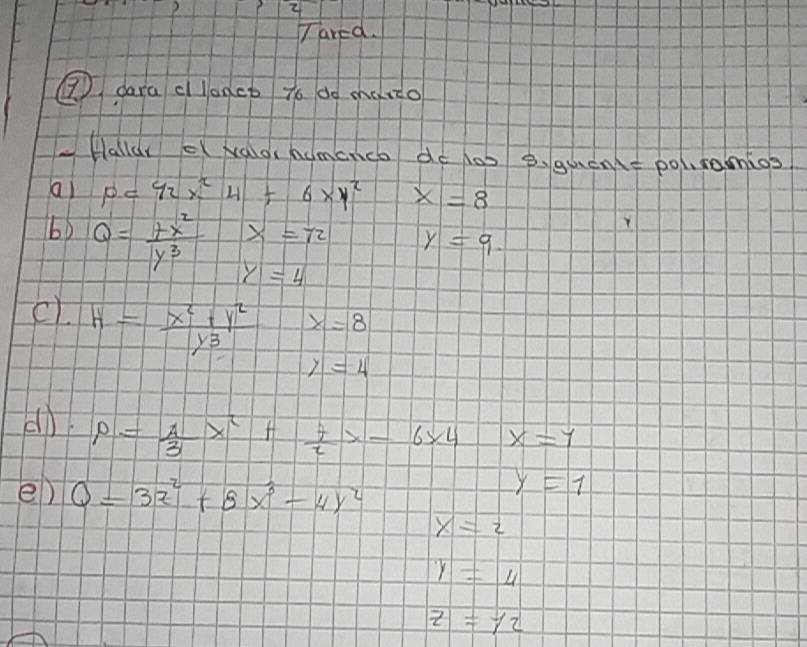 Tarea.
1) para el lunes 16 de marzo
- Hallar el valor numerico de los siguiente polinomios
a) P = 42x² 4 + 6xy² x = 8
y = 9.
b) Q = 7x² / y³ x = 12
y = 4
c). H = x² + y² / y3 x = 8
y = 4
d). P = x² + x - 6x4 x = 1
y = 1
e) Q = 3z² + 8x³ - 4y²
x = 2
y = 4
z = 12